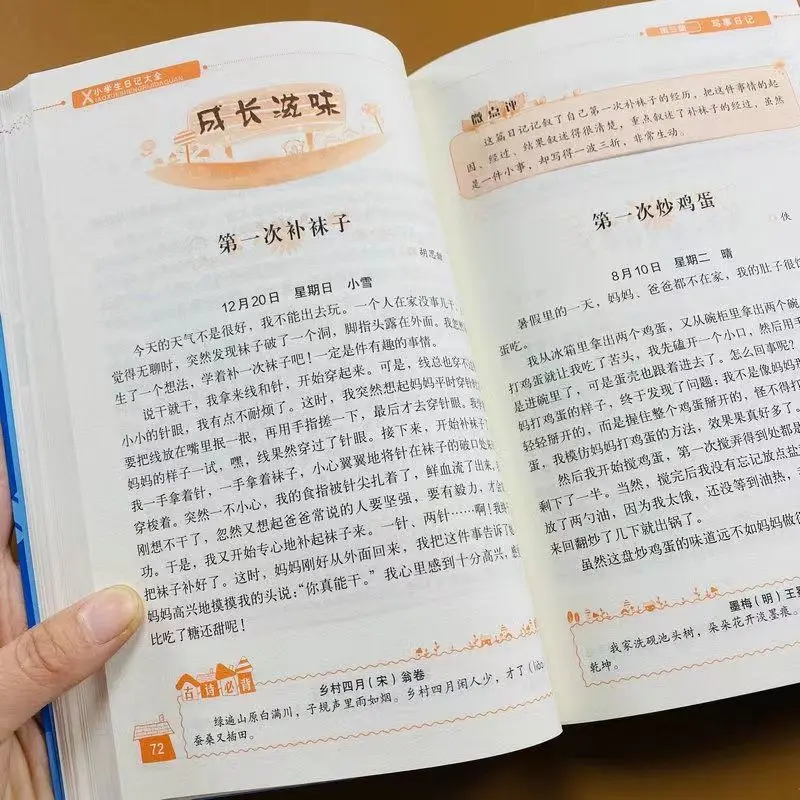 小学生日记大全
XIAOXUESHENGRIJIDAQUAN
成长滋味
第一次补袜子
胡思
12月20日 星期日 小雪
今天的天气不是很好，我不能出去玩。一个人在家没事儿干，
觉得无聊时，突然发现袜子破了一个洞，脚指头露在外面。我
生了一个想法，学着补一次袜子吧！一定是件有趣的事情。
说干就干，我拿来线和针，开始穿起来。可是，线总也穿不
小小的针眼，我有点不耐烦了。这时，我突然想起妈妈平时穿针
要把线放在嘴里抿一抿，再用手指搓一下，最后才去穿针眼。我
妈妈的样子一试，嘿，线果然穿过了针眼。接下来，开始补袜子
我一手拿着针，一手拿着袜子，小心翼翼地将针在袜子的破口处
穿梭着。突然一不小心，我的食指被针尖扎着了，鲜血流了出来，
刚想不干了，忽然又想起爸爸常说的人要坚强，要有毅力，才会
功。于是，我又开始专心地补起袜子来。一针、两针……啊！我
把袜子补好了。这时，妈妈刚好从外面回来，我把这件事告诉了
妈妈高兴地摸摸我的头说：“你真能干。”我心里感到十分高兴，
比吃了糖还甜呢！
古诗必背
乡村四月（宋）翁卷
绿遍山原白满川，子规声里雨如烟。乡村四月闲人少，才了（liǎo
蚕桑又插田。
72
第三章 写事日记
微点评
这篇日记记叙了自己第一次补袜子的经历，把这件事情的起
因、经过、结果叙述得很清楚，重点叙述了补袜子的经过，虽然
是一件小事，却写得一波三折，非常生动。
第一次炒鸡蛋
佚
8月10日 星期二 晴
暑假里的一天，妈妈、爸爸都不在家，我的肚子很
蛋吃。
我从冰箱里拿出两个鸡蛋，又从碗柜里拿出两个碗
打鸡蛋就让我吃了苦头，我先磕开一个小口，然后用
是进碗里了，可是蛋壳也跟着进去了。怎么回事呢？
妈打鸡蛋的样子，终于发现了问题：我不是像妈妈
轻轻掰开的，而是握住整个鸡蛋掰开的，怪不得打
蛋，我模仿妈妈打鸡蛋的方法，效果果真好多了。
然后我开始搅鸡蛋，第一次搅弄得到处都是
剩下了一半。当然，搅完后我没有忘记放点盐
放了两勺油，因为我太饿，还没等到油热，
来回翻炒了几下就出锅了。
虽然这盘炒鸡蛋的味道远不如妈妈做得
墨梅（明）王
我家洗砚池头树，朵朵花开淡墨痕。
乾坤。